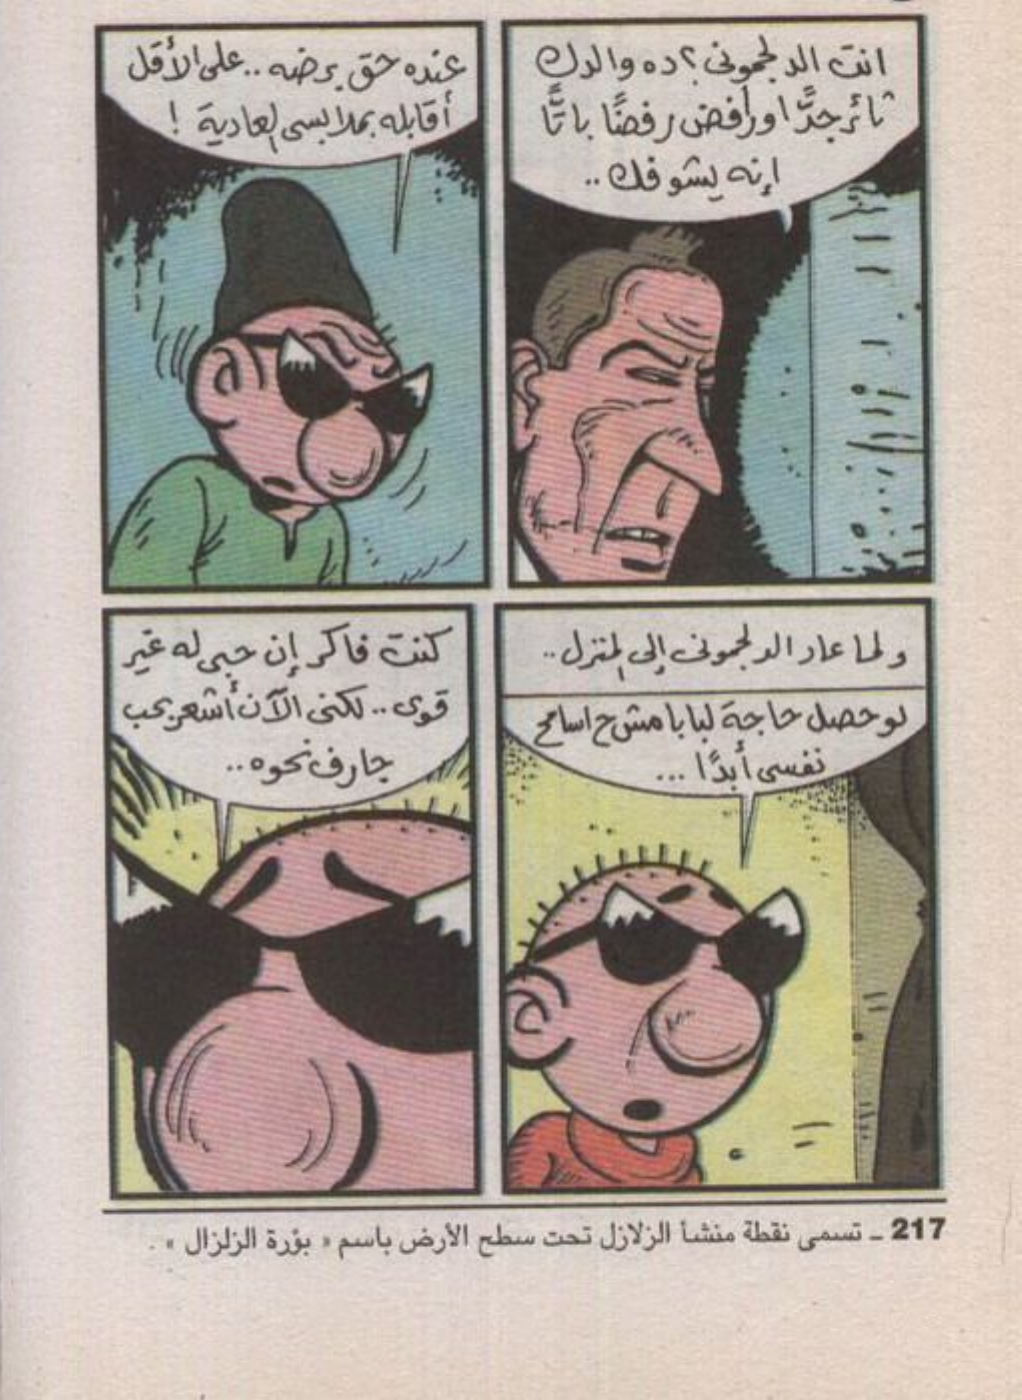 انت الدلجمونى؟ ده والدك
ثائر جدًّا ورافض رفضًا باتًّا
إنه يشوفك ..
عنده حق برضه .. على الأقل
أقابله بملابسى العادية !
ولما عاد الدلجمونى إلى المنزل ..
لو حصل حاجة لبابا مش ح اسامح
نفسى أبدًا ...
كنت فاكر إن حبى له غير
قوى .. لكنى الآن أشعر بحب
جارف نحوه ..
217 ـ تسمى نقطة منشأ الزلازل تحت سطح الأرض باسم « بؤرة الزلزال » .